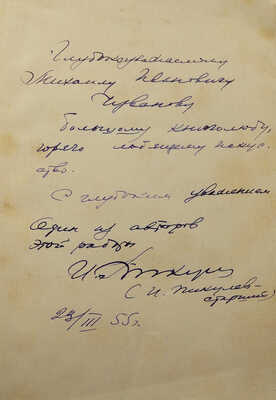 Глубокоуважаемому
Михаилу Ивановичу
Чуванову
большому книголюбу,
горячо любящему искус-
ство.
С глубоким уважением
Один из авторов
этой работы
(И. Пикулев-
старший)
23/III 55 г.